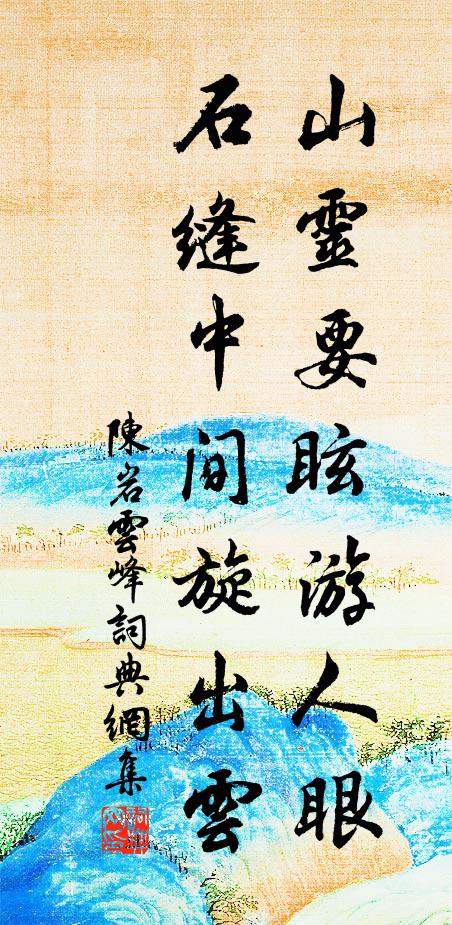 山靈要眩游人眼
石縫中間旋出雲
陳岩雲峰詞典網集